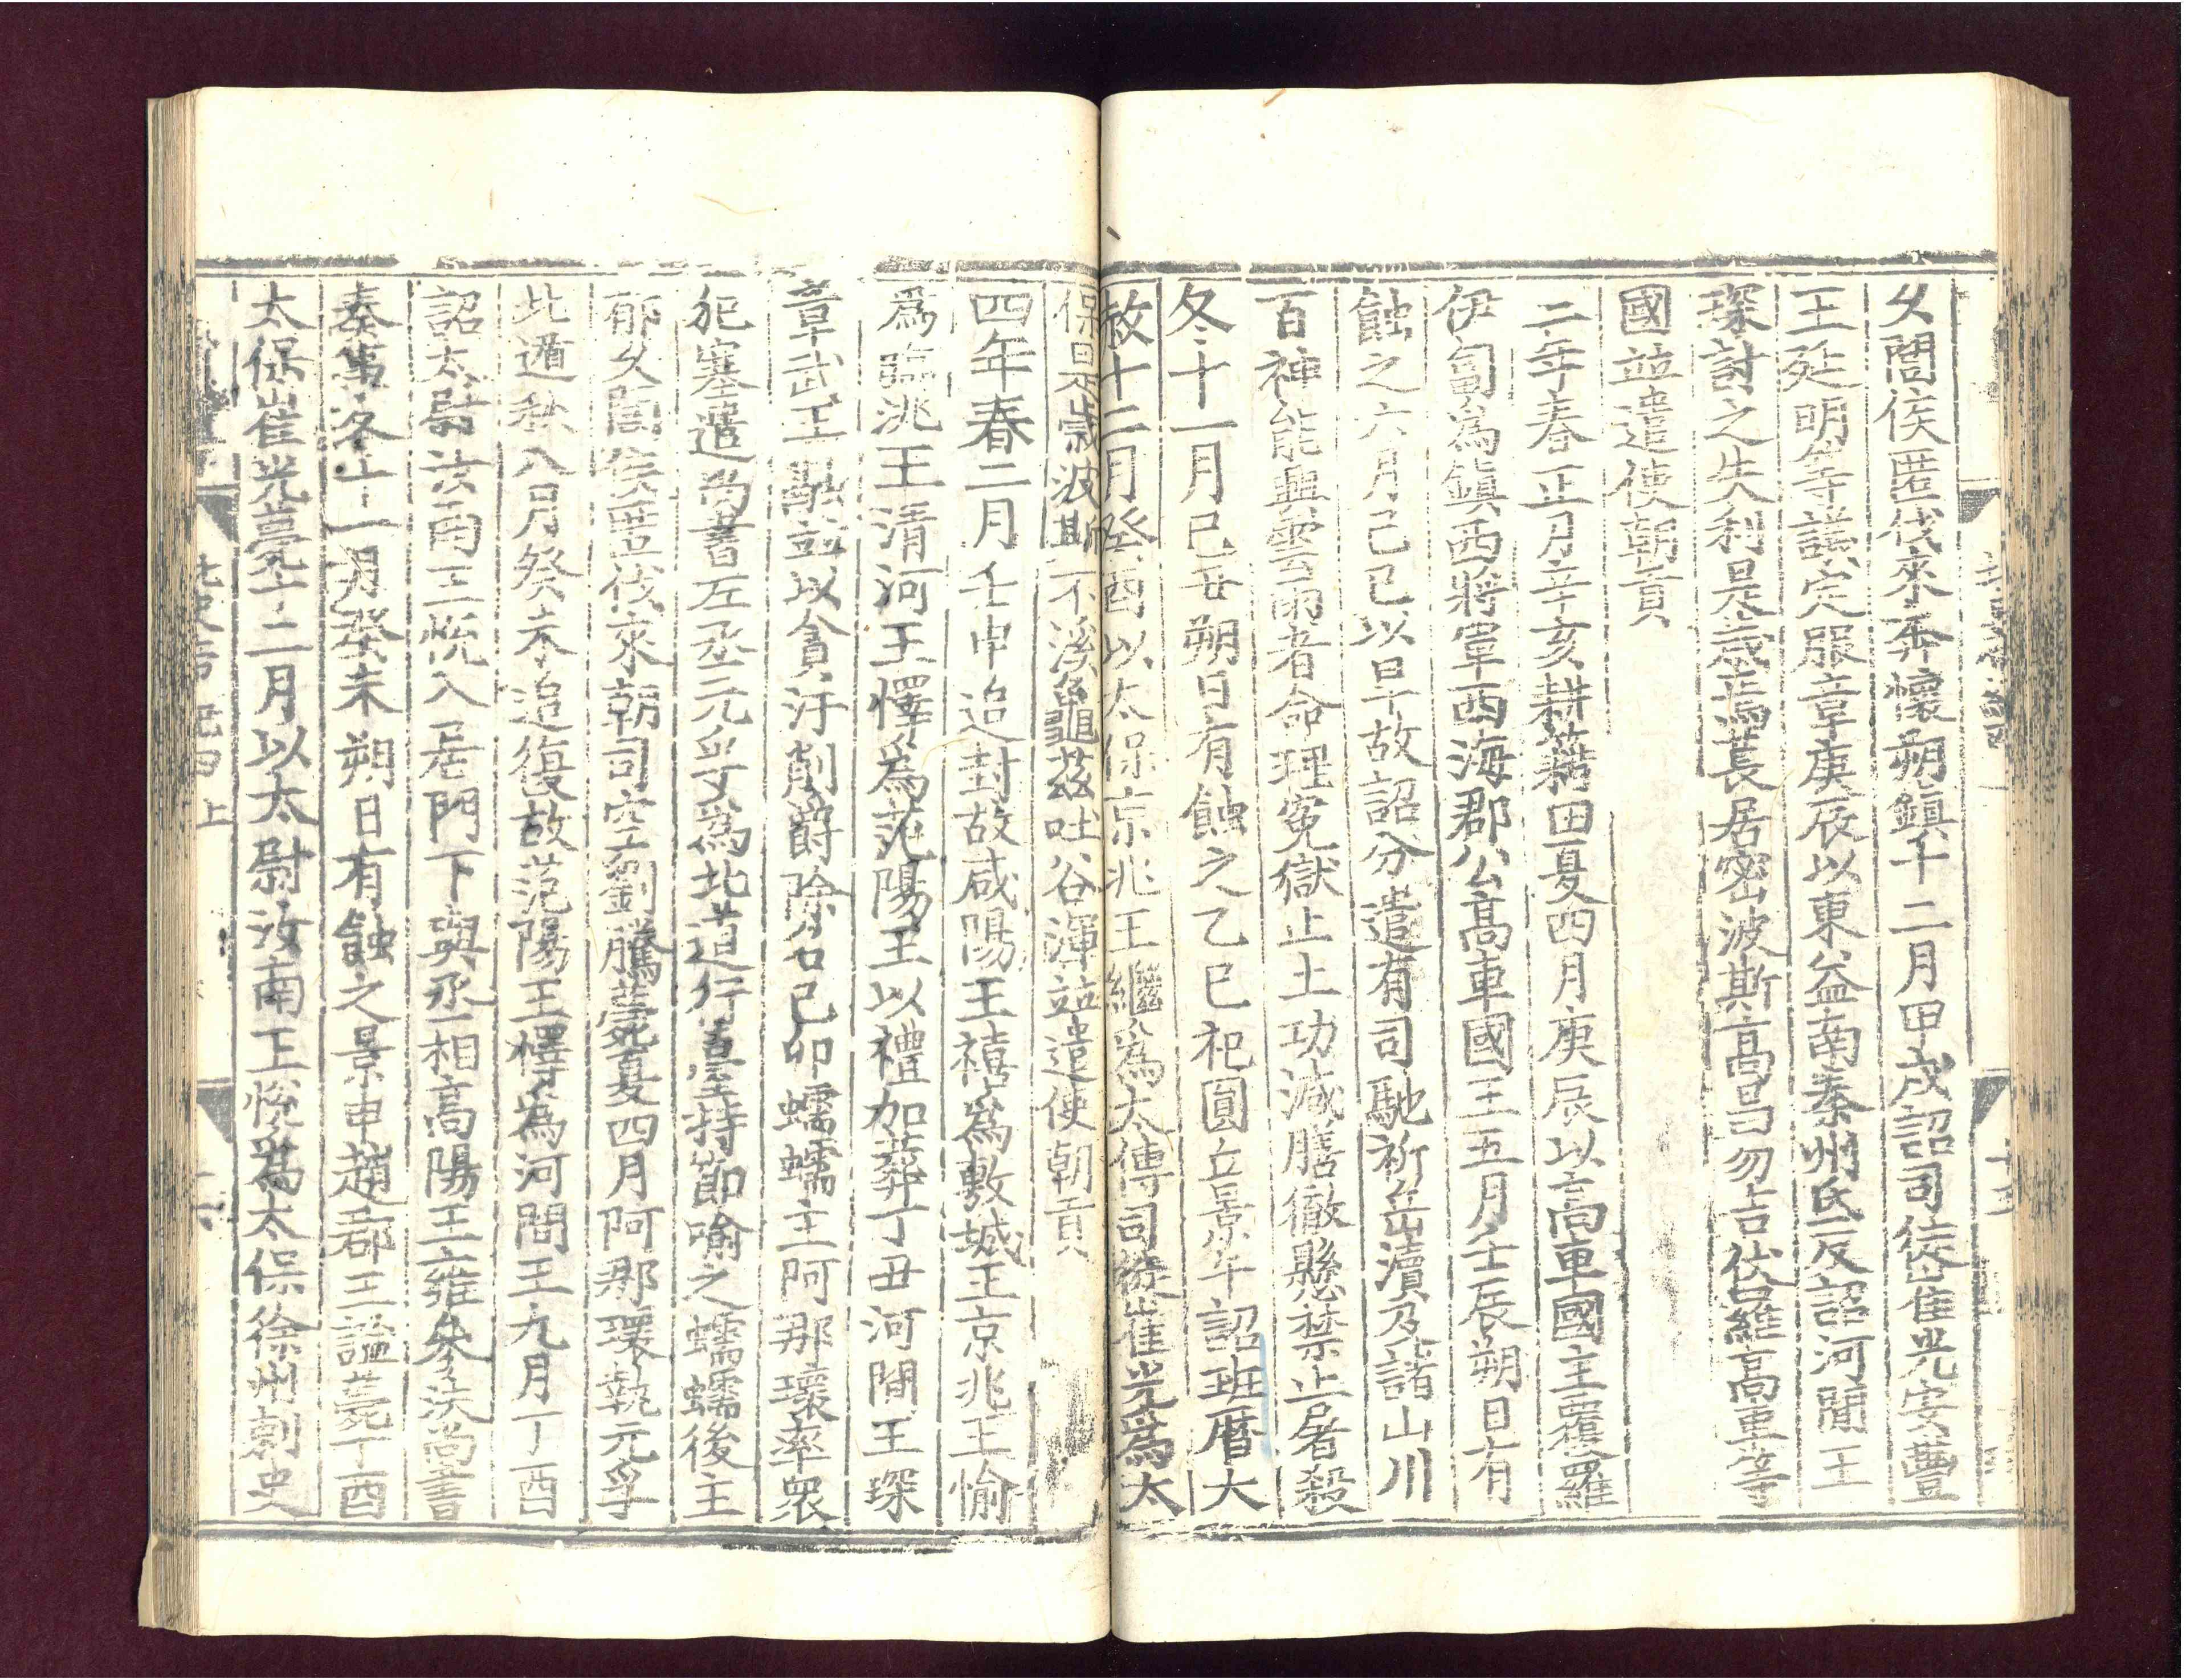 久閭侯匿伐來奔懷朔鎮十二月甲戌詔司徒崔光安豐
王延明等議定服章庚辰以東益南秦州氐反詔河間王
琛討之失利是歲烏萇居密波斯高昌勿吉伏羅高車等
國並遣使朝貢
三年春正月辛亥耕籍田夏四月庚辰以高車國主覆羅
伊匐為鎮西將軍西海郡公高車國王五月壬辰朔日有
蝕之六月己巳以旱故詔分遣有司馳祈岳瀆及諸山川
百神能興雲雨者命理冤獄止土功減膳徹懸禁止屠殺
冬十一月己丑朔日有蝕之乙巳祀圓丘景午詔班曆大
赦十二月癸酉以太保京兆王繼為太傅司徒崔光為太
保是歲波斯不溪龜茲吐谷渾並遣使朝貢
四年春二月壬申追封故咸陽王禧為敷城王京兆王愉
為臨洮王清河王懌為范陽王以禮加葬丁丑河間王琛
章武王融並以貪汙削爵除名己卯蠕蠕主阿那瓌率衆
犯塞遣尚書左丞元孚為北道行臺持節喻之蠕蠕後主
郁久閭侯匿伐來朝司空劉騰薨夏四月阿那瓌執元孚
北遁秋八月癸未追復故范陽王懌為河間王九月丁酉
詔太尉汝南王悅入居門下與丞相高陽王雍參決尚書
奏事冬十一月癸未朔日有蝕之景申趙郡王謐薨丁酉
太保崔光薨十二月以太尉汝南王悅為太保徐州刺史
北史 紀四 上
十六